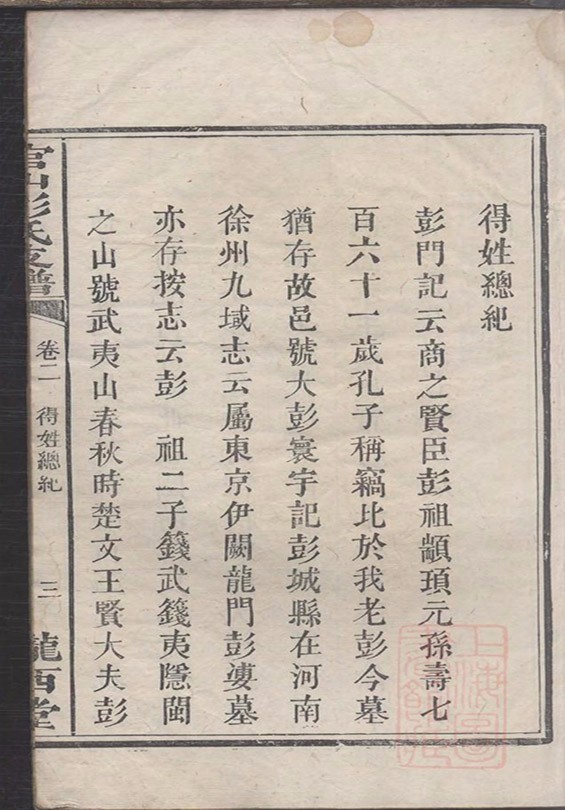 得姓總紀
彭門記云商之賢臣彭祖顓頊元孫壽七
百六十一歲孔子稱竊比於我老彭今墓
猶存故邑號大彭寰宇記彭城縣在河南
徐州九域志云屬東京伊闕龍門彭婆墓
亦存按志云彭 祖二子籛武籛夷隱閩
之山號武夷山春秋時楚文王賢大夫彭
官山彭氏支譜
卷二 得姓總紀
三
隴西堂
上海圖